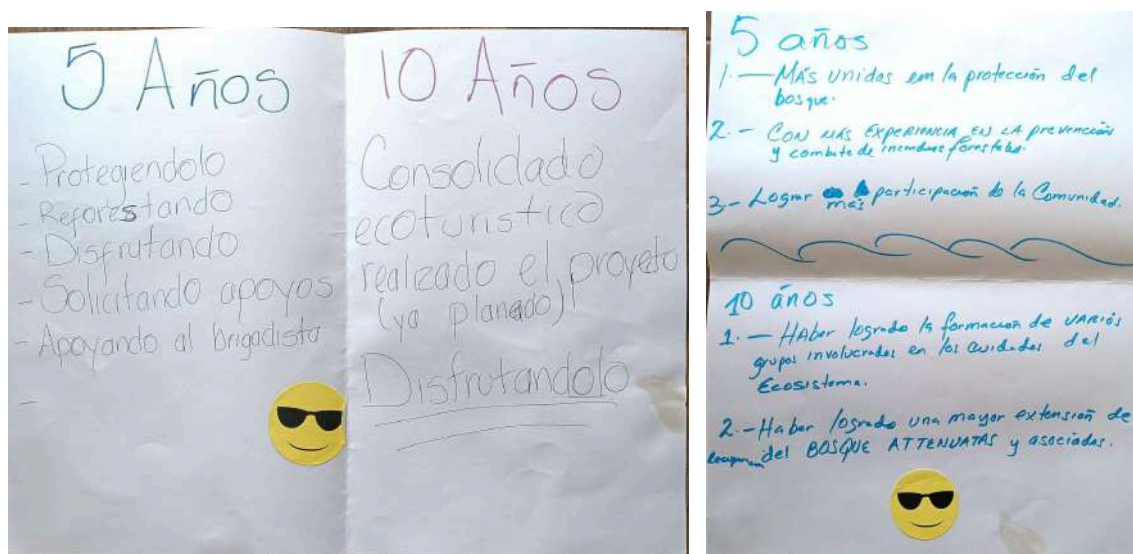 5 Años
- Protegiendolo
- Reforestando
- Disfrutando
- Solicitando apoyos
- Apoyando al brigadista
-
10 Años
Consolidado
ecoturistico
realizado el proyeto
(ya planeado)
Disfrutandolo
5 años
1.- Más unidos em la protección del
bosque.
2.- CON MÁS EXPERIENCIA EN LA prevención
y combate de incendios forestales.
3.- Lograr más participación de la Comunidad.
10 años
1.- HAber logrado la formación de VARIOS
grupos involucrados en los cuidados del
Ecosistema.
2.- Haber logrado una mayor extensión de
del BOSQUE ATTENUATAS y asociados.